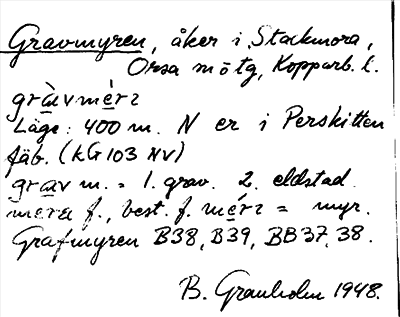 Gravmyren, åker i Stackmora,
Orsa mötg, Kopparb. l.
gràvmérɪ
Läge: 400 m. N er i Perskitten
fäb. (KG103 NV)
grav m. = 1. grav. 2. eldstad.
f., best. f. mérɪ = myr.
Grafmyren B38, B39, BB37, 38.
B. Granholm 1948.